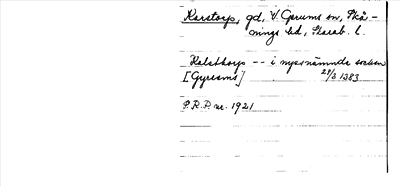 Karstorp, gd, V. Gerums sn, Skå-
nings hd, Skarab. l.
Kalsthorp -- i nyssnämnda socken
[Gyresms] 29/6 1383
P.R.P. nr. 1921